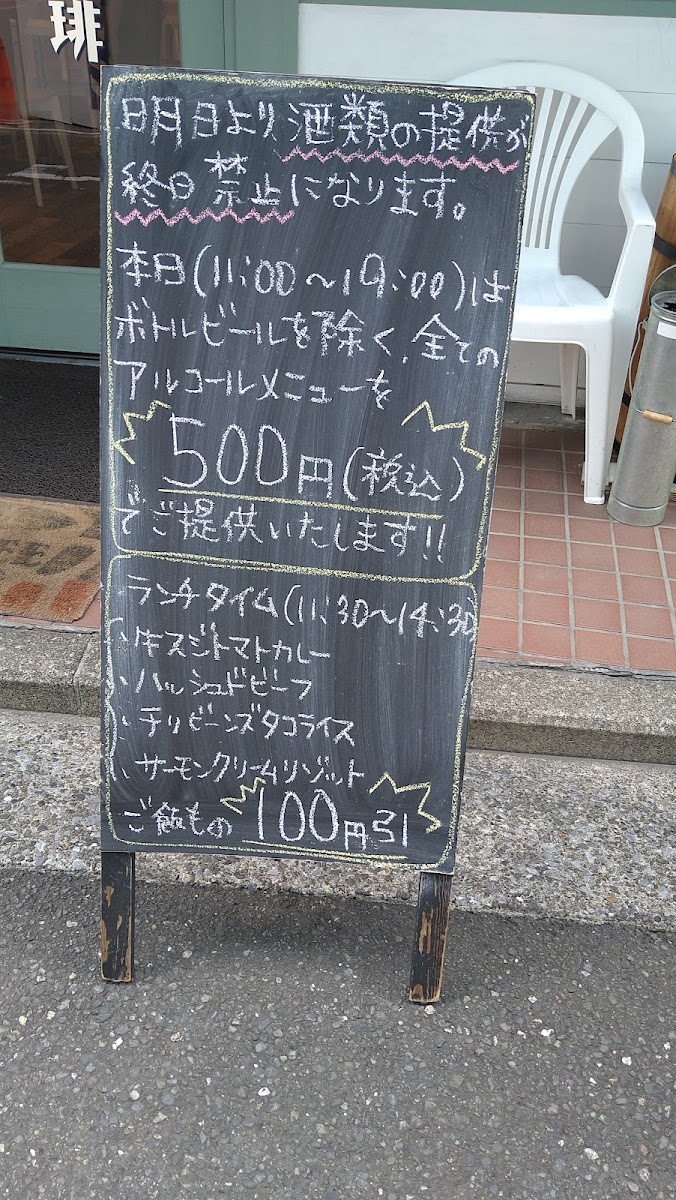 琲
明日より、酒類の提供が
終日禁止になります。
本日(11:00〜19:00)は
ボトルビールを除く、全ての
アルコールメニューを
500円(税込)
でご提供いたします!!
ランチタイム(11:30〜14:30)
・牛スジトマトカレー
・ハッシュドビーフ
・チリビーンズタコライス
・サーモンクリームリゾット
ご飯もの 100円引